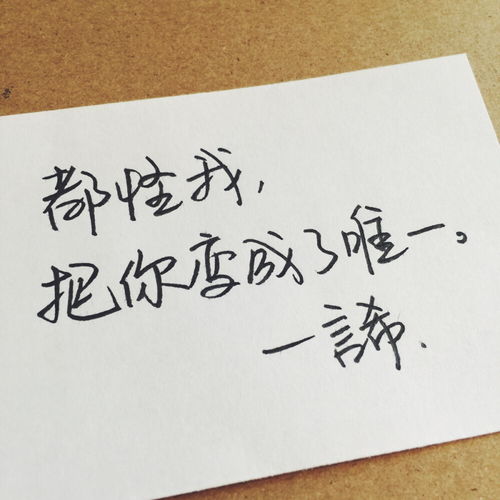 都怪我，
把你变成了唯一。
一諦.